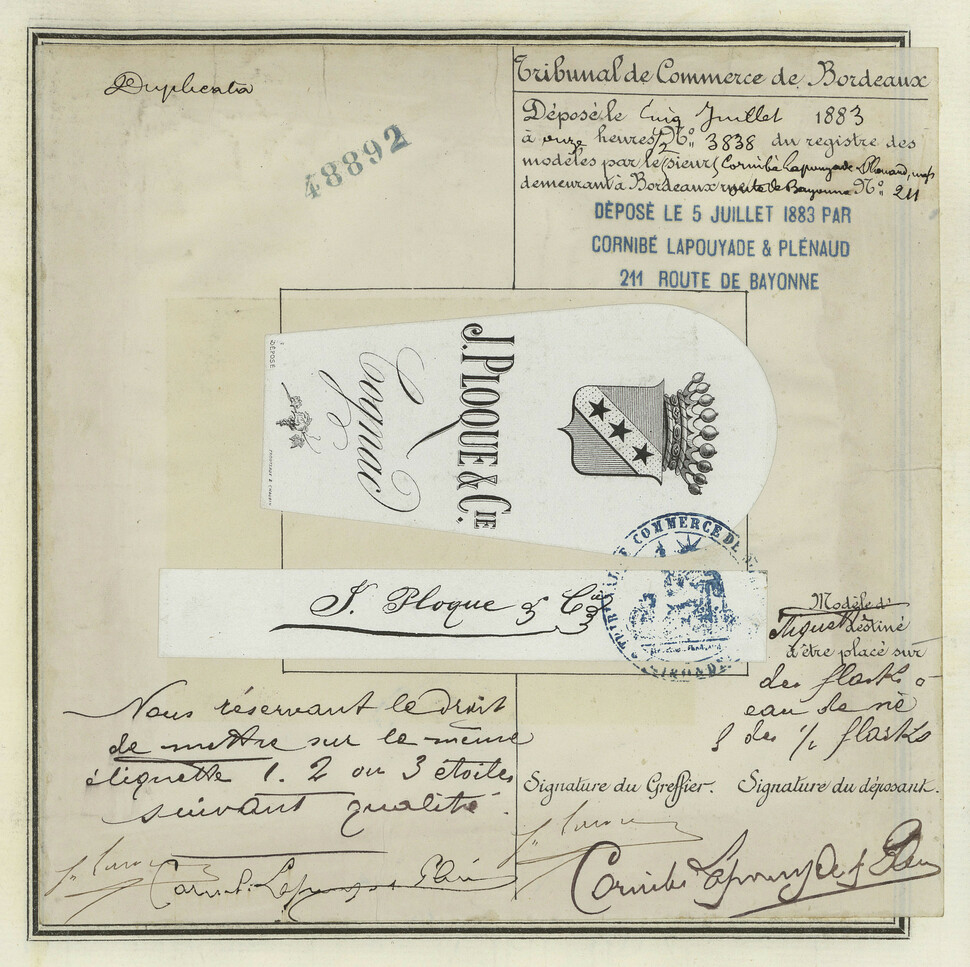 Duplicata
48892
Tribunal de Commerce de Bordeaux
Déposé le Cinq Juillet 1883
à onze heures ½ N° 3838 du registre des
modèles par le sieurs Cornibé Lapouyade Plénaud,
demeurant à Bordeaux route de Bayonne N° 211
DÉPOSÉ LE 5 JUILLET 1883 PAR
CORNIBÉ LAPOUYADE & PLÉNAUD
211 ROUTE DE BAYONNE
J. PLOQUE & CIE
Cognac
DÉPOSÉ
J. Ploque & Cie
COMMERCE DE
GIRONDE
Modèle d'
étiquette destiné
à être placé sur
des flasks à
eau de vie
& des ½ flasks
Nous réservant le droit
de mettre sur la même
étiquette 1. 2 ou 3 étoiles
suivant qualité.
Signature du Greffier. Signature du déposant.
Cornibé Lapouyade & Plénaud
Cornibé Lapouyade & Plénaud